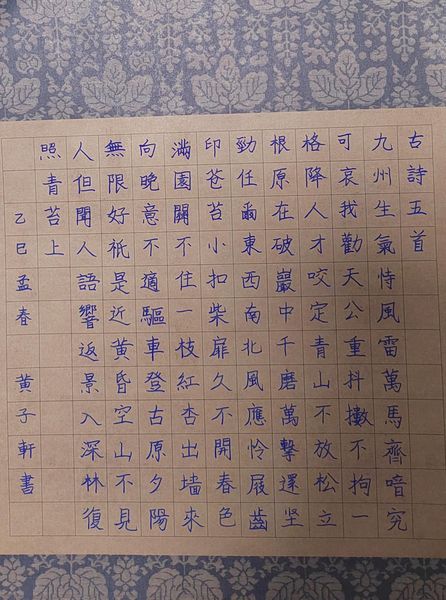 古詩五首
九州生氣恃風雷萬馬齊喑究
可哀我勸天公重抖擻不拘一
格降人才咬定青山不放松立
根原在破巖中千磨萬擊還坚
勁任爾東西南北風應怜屐齒
印苍苔小扣柴扉久不開春色
滿園關不住一枝紅杏出墻來
向晚意不適驅車登古原夕陽
無限好祇是近黄昏空山不見
人但聞人語響返景入深林復
照青苔上
乙巳孟春 黄子軒書